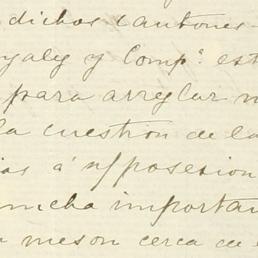 dichos Cantones
y Comp.ª est
para arreglar
la cuestion de la
as á esposesion
mucha importan
meson cerca de